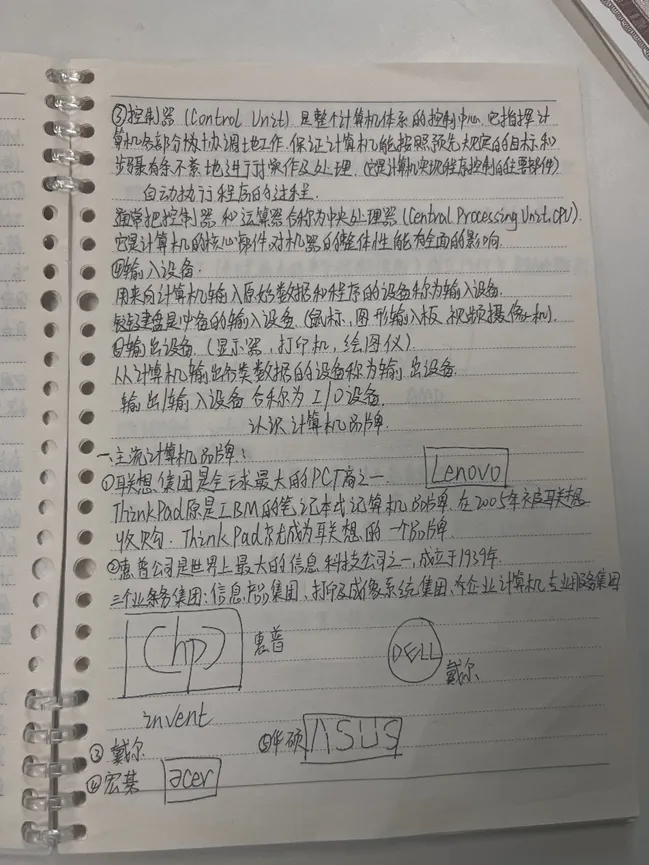 ③控制器(Control Unit)是整个计算机体系的控制中心,它指挥计
算机各部分协调地工作,保证计算机能按照预先规定的目标和
步骤有条不紊地进行操作及处理.(它是计算机实现程序控制的主要部件)
自动执行程序的过程.
通常把控制器和运算器合称为中央处理器(Central Processing Unit,CPU).
它是计算机的核心部件,对机器的整体性能有全面的影响.
④输入设备.
用来向计算机输入原始数据和程序的设备称为输入设备.
键盘是必备的输入设备.(鼠标,图形输入板,视频摄像机).
⑤输出设备.(显示器,打印机,绘图仪).
从计算机输出各类数据的设备称为输出设备.
输出/输入设备合称为I/O设备.
认识计算机品牌.
一.主流计算机品牌:
①联想集团是全球最大的PC厂商之一. Lenovo
ThinkPad原是IBM的笔记本式记算机品牌.在2005年被联想
收购.ThinkPad成为联想的一个品牌.
②惠普公司是世界上最大的信息科技公司之一,成立于1939年.
三个业务集团:信息产品集团、打印及成像系统集团、企业计算机专业服务集团
hp 惠普
DELL
戴尔
invent
③戴尔
⑤华硕 ASUS
④宏基 acer